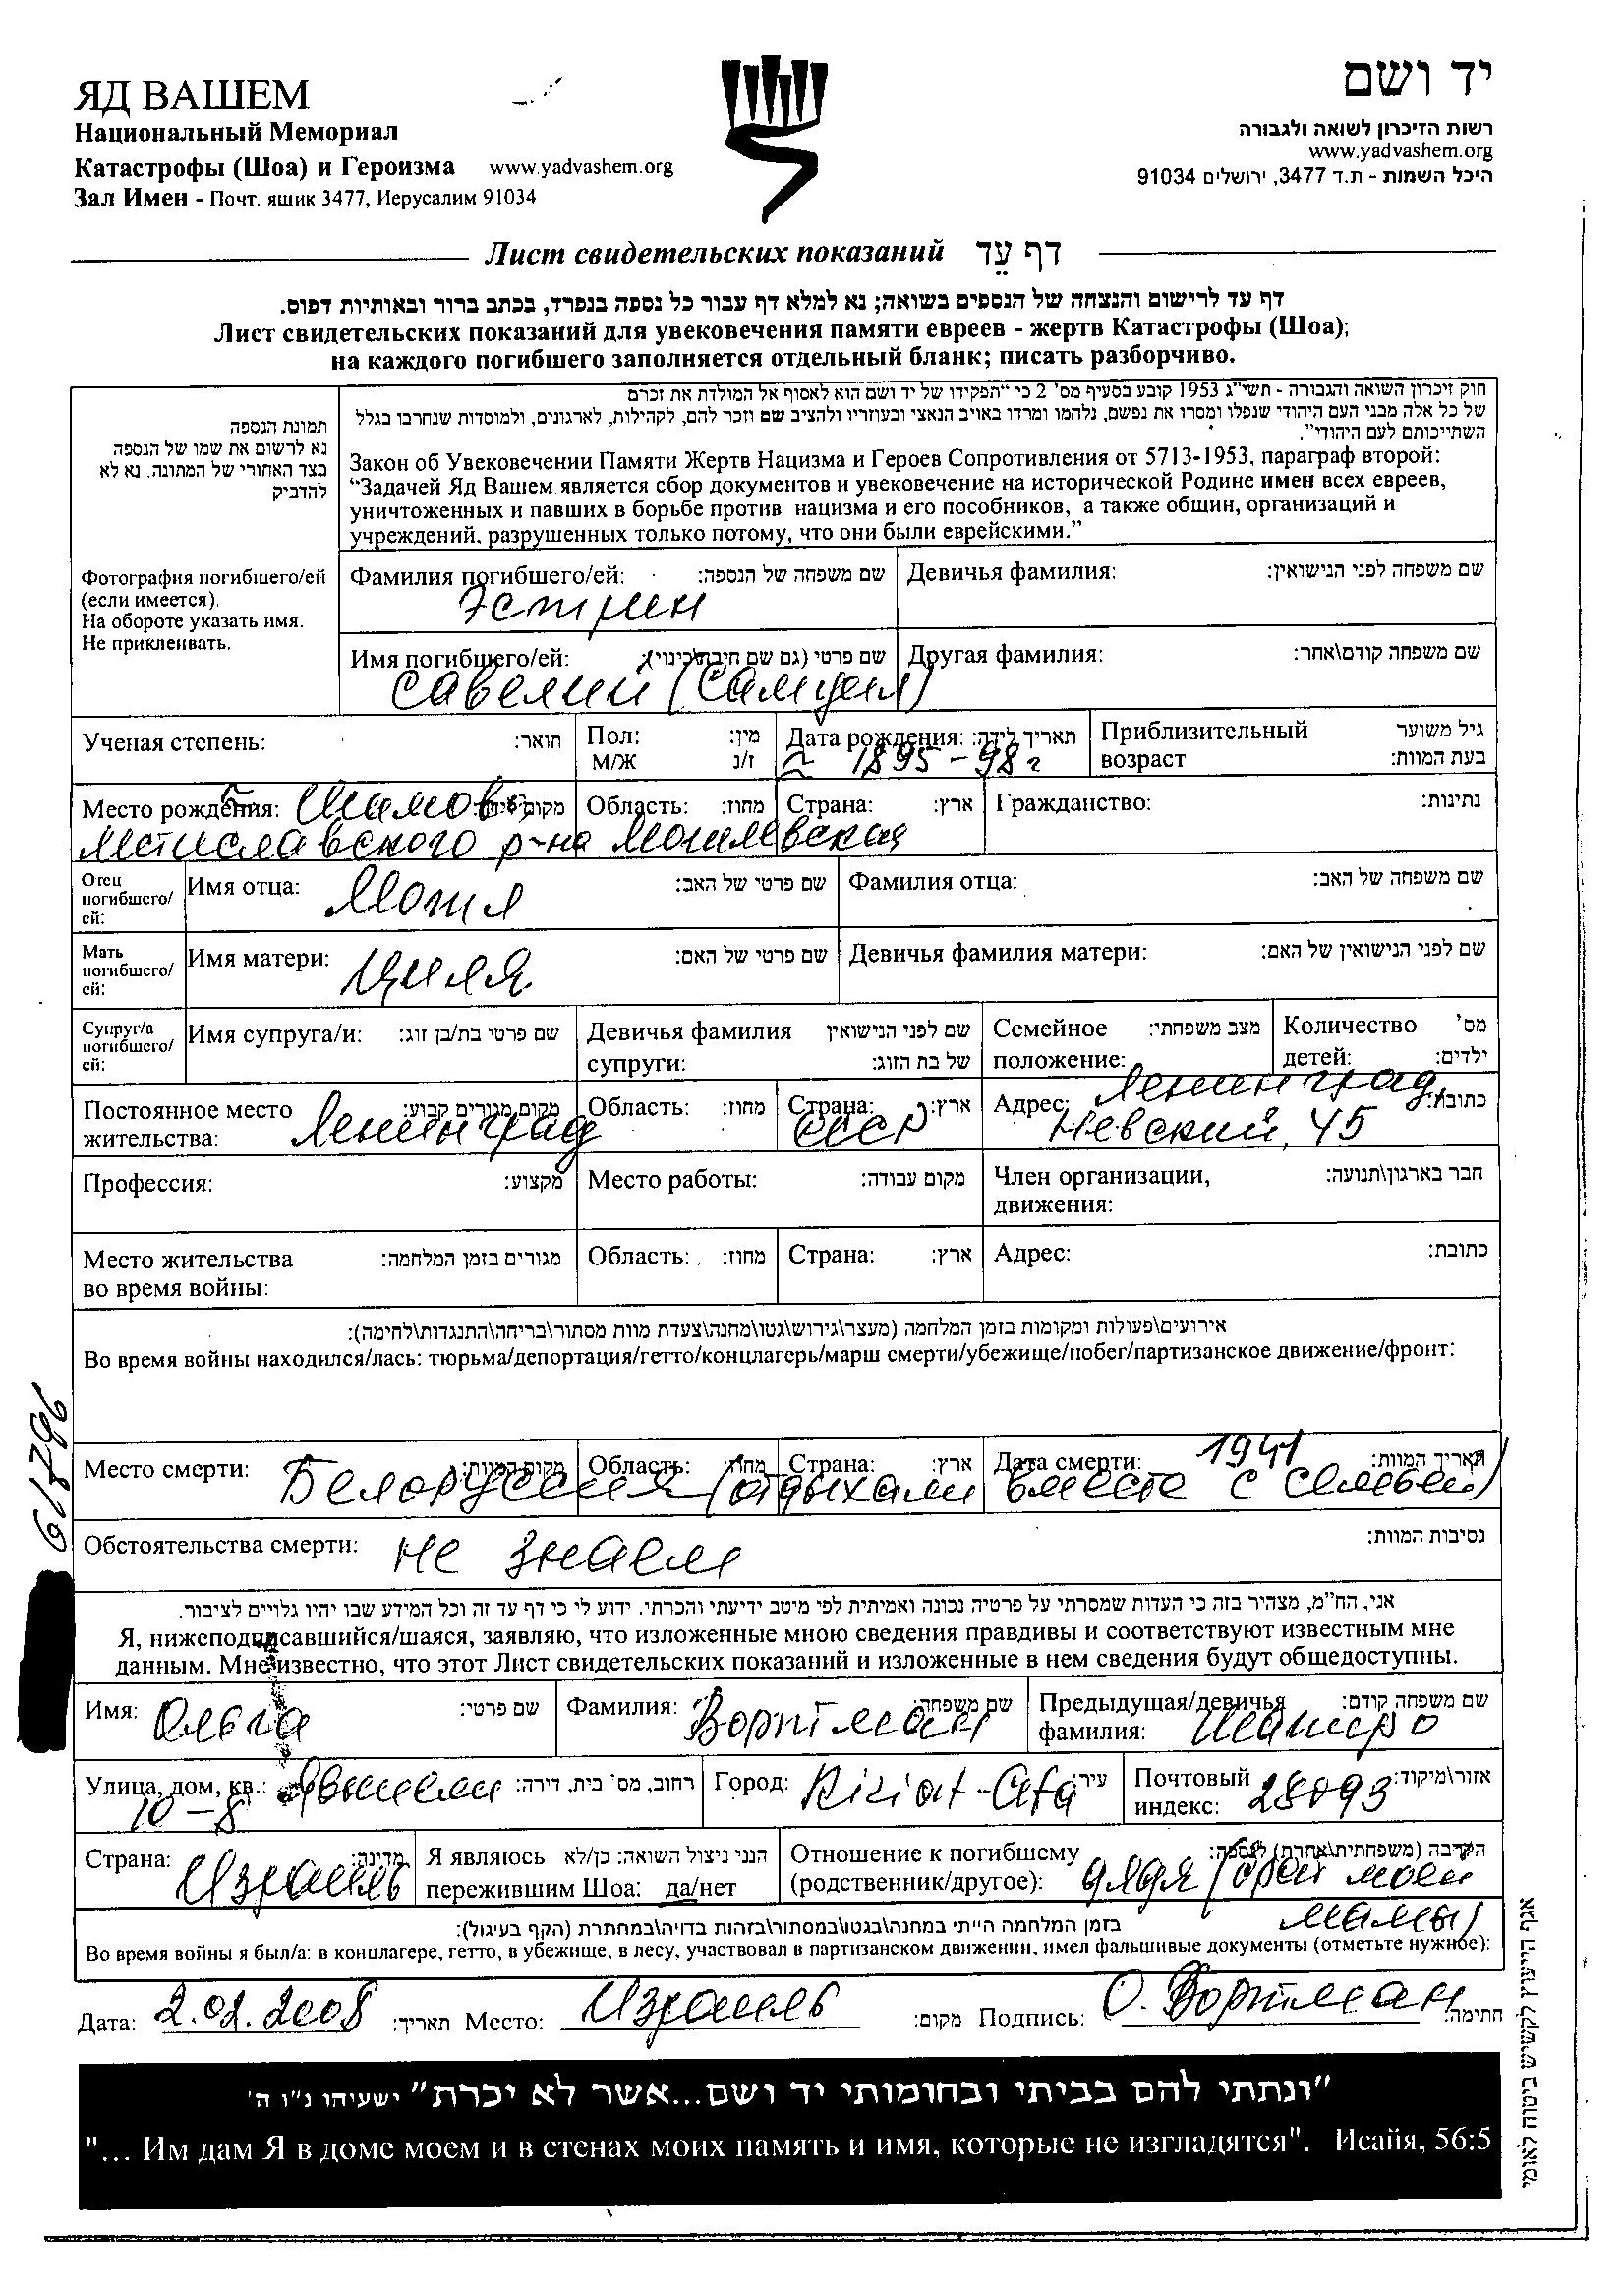 ЯД ВАШЕМ
Национальный Мемориал
Катастрофы (Шоа) и Героизма www.yadvashem.org
Зал Имен - Почт. ящик 3477, Иерусалим 91034
יד ושם
רשות הזיכרון לשואה ולגבורה
www.yadvashem.org
היכל השמות - ת.ד 3477, ירושלים 91034
Лист свидетельских показаний דף עֵד
דף עד לרישום והנצחה של הנספים בשואה; נא למלא דף עבור כל נספה בנפרד, בכתב ברור ובאותיות דפוס.
Лист свидетельских показаний для увековечения памяти евреев - жертв Катастрофы (Шоа);
на каждого погибшего заполняется отдельный бланк; писать разборчиво.
תמונת הנספה
נא לרשום את שמו של הנספה
בצד האחורי של התמונה. נא לא
להדביק
Фотография погибшего/ей
(если имеется).
На обороте указать имя.
Не приклеивать.
חוק זיכרון השואה והגבורה - תשי"ג 1953 קובע בסעיף מס' 2 כי "תפקידו של יד ושם הוא לאסוף אל המולדת את זכרם
של כל אלה מבני העם היהודי שנפלו ומסרו את נפשם, נלחמו ומרדו באויב הנאצי ובעוזריו ולהציב שם וזכר להם, לקהילות, לארגונים, ולמוסדות שנחרבו בגלל
השתייכותם לעם היהודי".
Закон об Увековечении Памяти Жертв Нацизма и Героев Сопротивления от 5713-1953, параграф второй:
“Задачей Яд Вашем является сбор документов и увековечение на исторической Родине имен всех евреев,
уничтоженных и павших в борьбе против нацизма и его пособников, а также общин, организаций и
учреждений, разрушенных только потому, что они были еврейскими.”
Фамилия погибшего/ей: שם משפחה של הנספה: Девичья фамилия: שם משפחה לפני הנישואין:
Эстрин
Имя погибшего/ей: שם פרטי (גם שם חיבה\כינוי): Другая фамилия: שם משפחה קודם\אחר:
Савелий (Самуил)
Ученая степень: תואר: Пол: מין: Дата рождения: תאריך לידה: Приблизительный גיל משוער
М/Ж ז/נ ~ 1895-98г возраст בעת המוות:
Место рождения: Шамово, מקום לידה: Область: מחוז: Страна: ארץ: Гражданство: נתינות:
Мстиславского р-на Могилевская
Отец
погибшего/
ей:
Имя отца: Мотя שם פרטי של האב: Фамилия отца: שם משפחה של האב:
Мать
погибшего/
ей:
Имя матери: Циля שם פרטי של האם: Девичья фамилия матери: שם לפני הנישואין של האם:
Супруг/а
погибшего/
ей:
Имя супруга/и: שם פרטי בת/בן זוג: Девичья фамилия שם לפני הנישואין Семейное מצב משפחתי: Количество מס'
супруги: של בת הזוג: положение: детей: ילדים:
Постоянное место מקום מגורים קבוע: Область: מחוז: Страна: ארץ: Адрес: Ленинград, כתובת:
жительства: Ленинград СССР Невский, 45
Профессия: מקצוע: Место работы: מקום עבודה: Член организации, חבר בארגון\תנועה:
движения:
Место жительства מגורים בזמן המלחמה: Область: מחוז: Страна: ארץ: Адрес: כתובת:
во время войны:
אירועים\פעולות ומקומות בזמן המלחמה (מעצר\גירוש\גטו\מחנה\צעדת מוות מסתור\בריחה\התנגדות\לחימה):
Во время войны находился/лась: тюрьма/депортация/гетто/концлагерь/марш смерти/убежище/побег/партизанское движение/фронт:
6/8796
Место смерти: מקום המוות: Область: מחוז: Страна: ארץ: Дата смерти: 1941 תאריך המוות:
Белоруссия (отдыхали вместе с семьей)
Обстоятельства смерти: не знаем נסיבות המוות:
אני, הח"מ, מצהיר בזה כי העדות שמסרתי על פרטיה נכונה ואמיתית לפי מיטב ידיעתי והכרתי. ידוע לי כי דף עד זה וכל המידע שבו יהיו גלויים לציבור.
Я, нижеподписавшийся/шаяся, заявляю, что изложенные мною сведения правдивы и соответствуют известным мне
данным. Мне известно, что этот Лист свидетельских показаний и изложенные в нем сведения будут общедоступны.
Имя: Ольга שם פרטי: Фамилия: Вортман שם משפחה: Предыдущая/девичья שם משפחה קודם:
фамилия: Шапиро
Улица, дом, кв.: רחוב, מס' בית, דירה: Город: Kiriat-Ata עיר: Почтовый אזור\מיקוד:
10-8 индекс: 28093
Страна: Израиль מדינה: Я являюсь הנני ניצול השואה: כן/לא Отношение к погибшему הקירבה (משפחתית\אחרת) לנספה:
пережившим Шоа: да/нет (родственник/другое): дядя (брат моей
мамы)
בזמן המלחמה הייתי במחנה\בגטו\במסתור\בזהות בדויה\במחתרת (הקף בעיגול):
Во время войны я был/а: в концлагере, гетто, в убежище, в лесу, участвовал в партизанском движении, имел фальшивые документы (отметьте нужное):
Дата: 2.02.2008 תאריך: Место: Израиль מקום: Подпись: О. Вортман חתימה:
"ונתתי להם בביתי ובחומותי יד ושם...אשר לא יכרת" ישעיהו נ"ו ה'
"... Им дам Я в доме моем и в стенах моих память и имя, которые не изгладятся". Исайя, 56:5
אגף הייעוץ לקשיש ביטוח לאומי